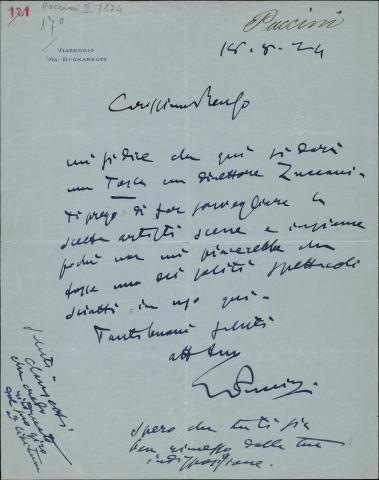 121
Puccini II/124
170
Puccini
VIAREGGIO
VIA BUONARROTI
18. 8. 24
Carissimo Renzo
mi si dice che qui si darà
una Tosca con direttore Zuccani.
Ti prego di far sorvegliare la
scelta artisti scene e insieme
poiché non mi piacerebbe che
fosse uno dei soliti spettacoli
sciatti in uso qui.
Tanti buoni saluti
aff tuo
GPuccini
spero che tu ti sia
ben rimesso dalla tua
indisposizione.